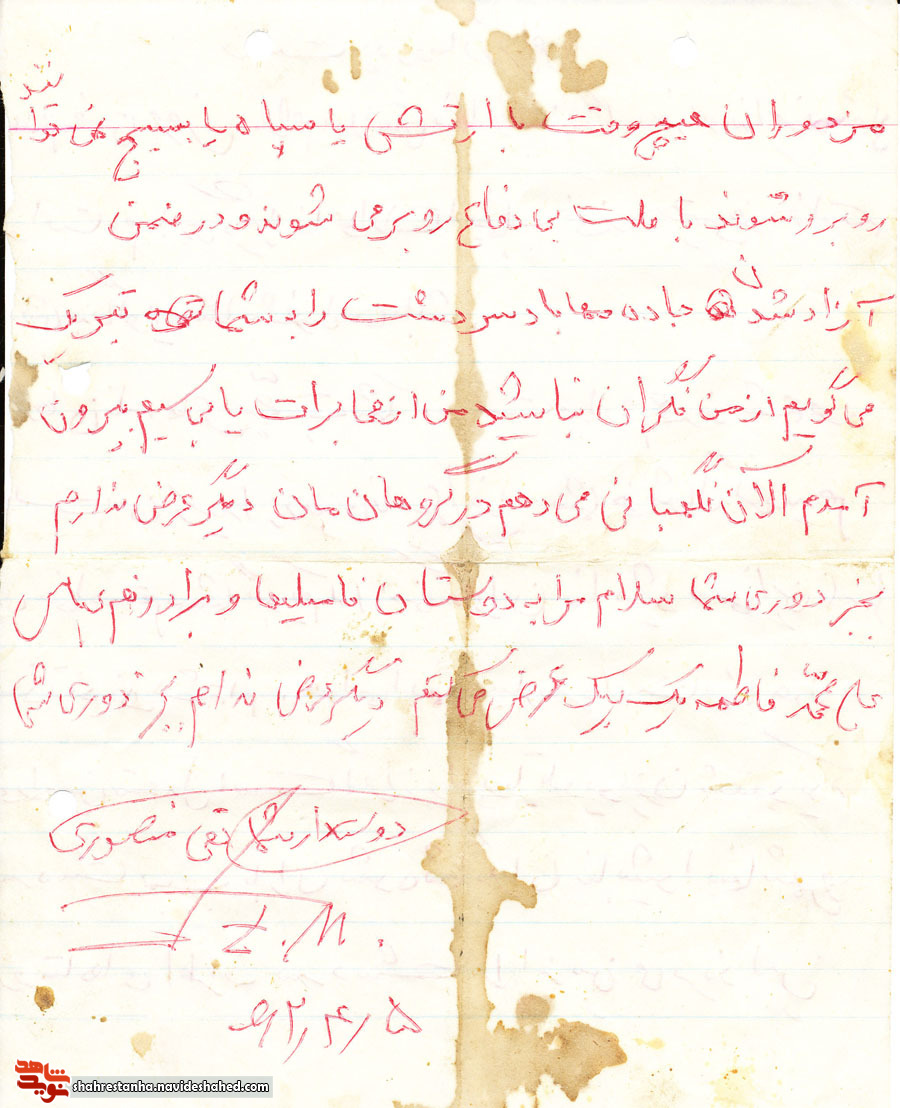 مزدوران هیچ وقت با ارتشی یا سپاه یا بسیج نمی توانند
روبرو شوند با ملت بی دفاع روبرمی شوند و در ضمن
آزاد شدن جاده مهاباد سردشت را به شما تبریک
می گویم از من نگران نباشید من از مخابرات یا بی سیم بیرون
آمدم الآن نگهبانی می دهم در گروهان مان دیگر عرض ندارم
بجز دوری شما سلام مرا به دوستان فامیلها و برادرهم
حاج محمد فاطمه یک یک عرض می کنم دیگر عرض ندارم بجز دوری شما
دوستدار شما تقی منصوری
Z.M.
۵ر۴ر۶۲
نوید شاهد
shahrestanha.navideshahed.com